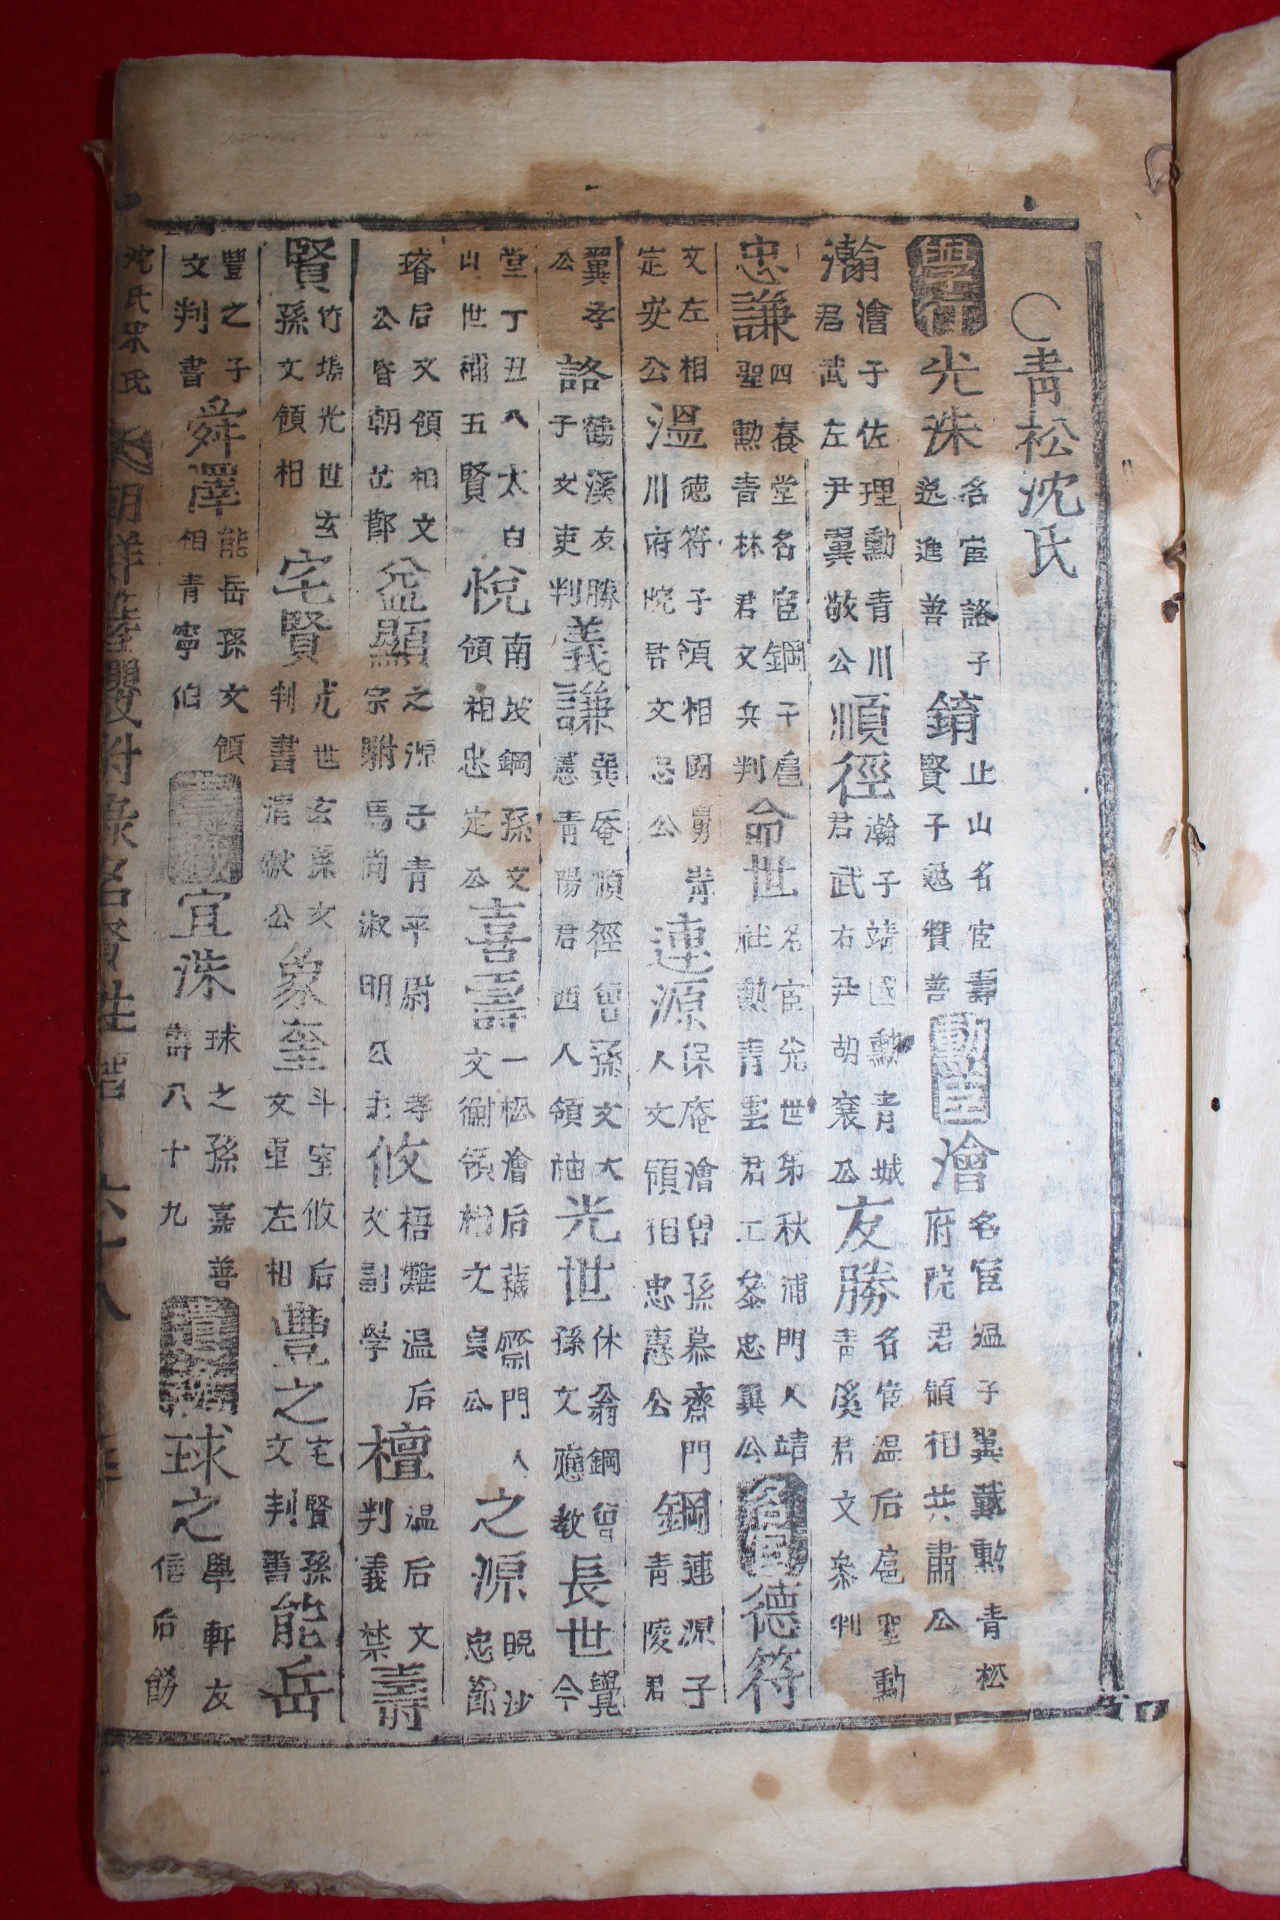 ○靑松沈氏
學行 光洙 名宦詻子逸進善 錥 止山名宦壽賢子逸贊善 勳臣 澮 名宦溫子翼戴勳靑松府院君領相共肅公
瀚 澮子佐理勳靑川君武左尹翼敬公 順徑 瀚子靖國勳靑城君武右尹胡襄公 友勝 名宦溫后扈聖勳靑溪君文參判
忠謙 四養堂名宦鋼子扈聖勳靑林君文兵判 命世 名宦光世弟秋浦門人靖社勳靑雲君工參忠翼公 名臣 德符
文左相定安公 溫 德符子領相國舅靑川府院君文忠公 連源 保庵澮曾孫慕齋門人文領相忠惠公 鋼 連源子靑陵君
翼孝公 詻 鶴溪友勝子文吏判 義謙 巽庵順徑曾孫文大憲靑陽君西人領袖 光世 休翁鋼曾孫文應敎 長世 覺今
堂丁丑八太白山世稱五賢 悅 南坡鋼孫文領相忠定公 喜壽 一松澮后蘇齋門人文衡領相文貞公 之源 晩沙忠節
璿后文領相文公昏朝芘鄭 益顯 之源子靑平尉孝宗駙馬尙淑明公主 攸 梧灘溫后文副學 檀 溫后文判義禁 壽
賢 竹塢光世玄孫文領相 宅賢 光世玄孫文判書淸獻公 象奎 斗室攸后文衡左相 豊之 宅賢孫文判書 能岳
豐之子文判書 舜澤 能岳孫文領相靑寧伯 壽職 宜洙 球之孫嘉善壽八十九 遺逸 球之 學軒友信后
沈氏宋氏 朝鮮簪纓附錄名賢姓譜 六十八